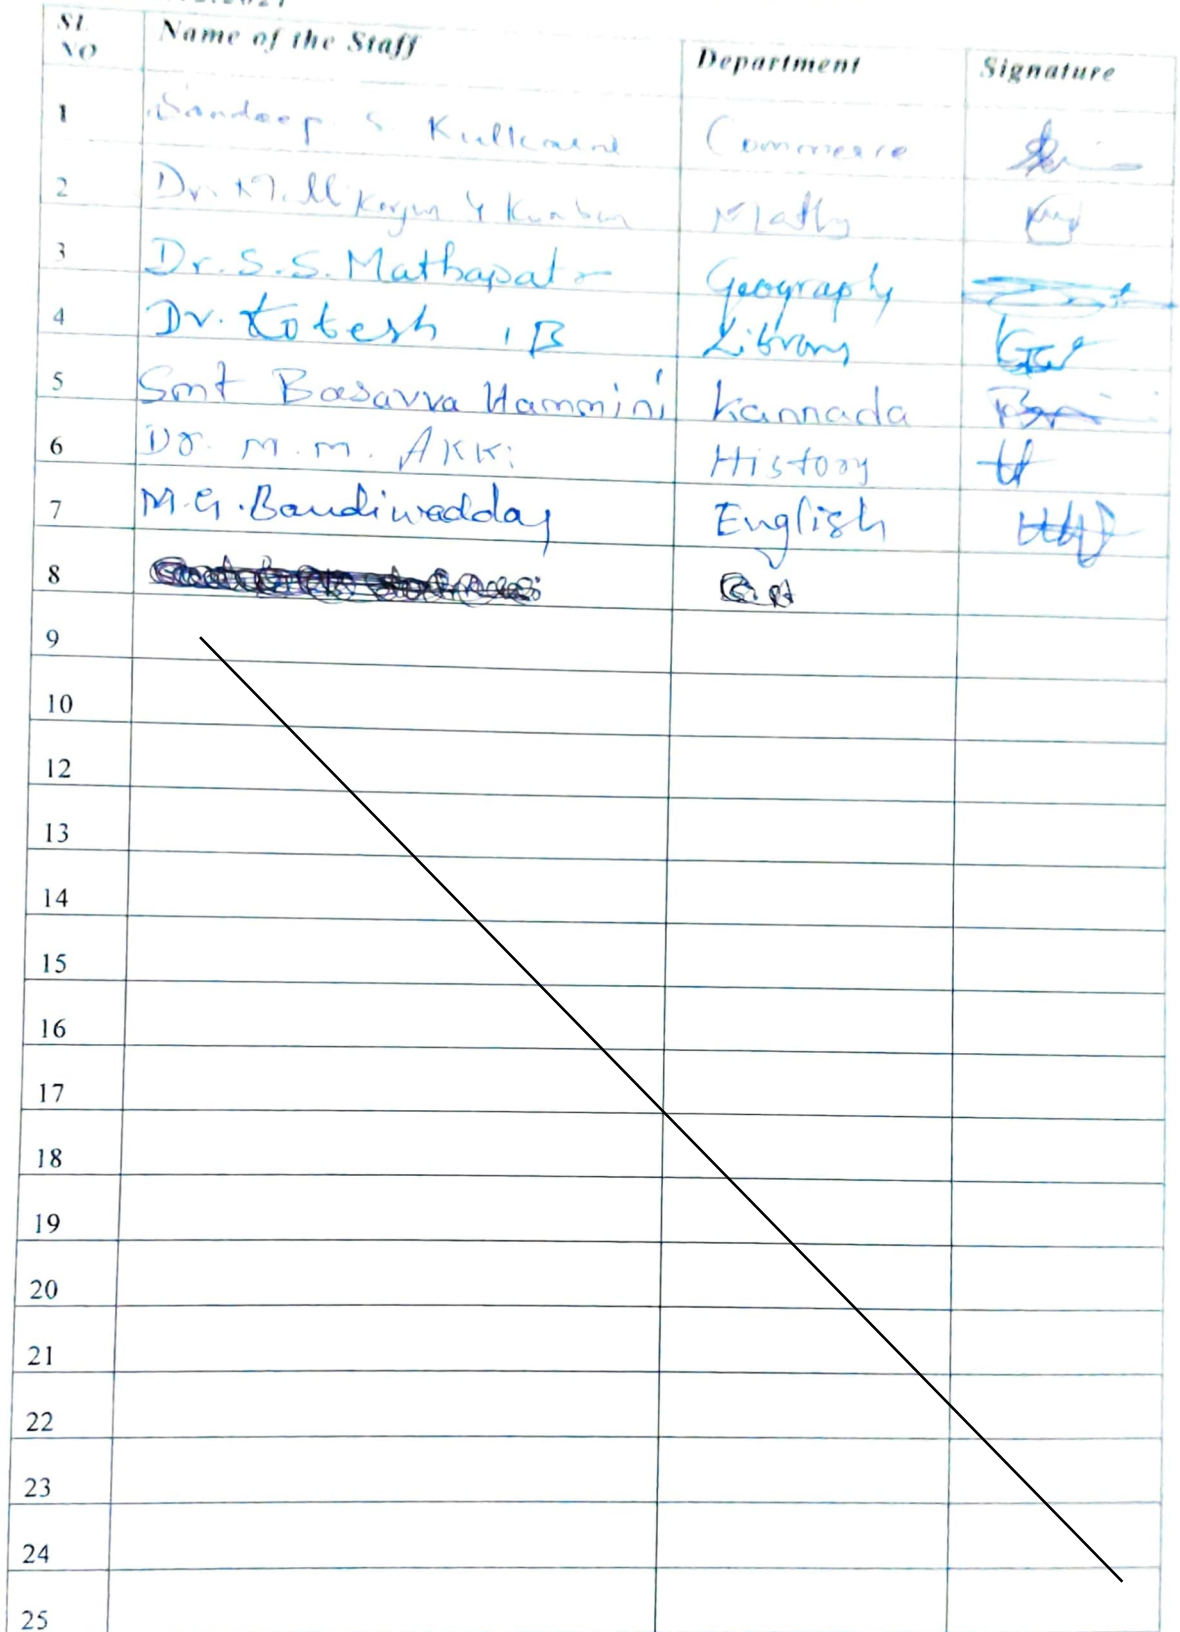 SL NO Name of the Staff Department Signature
1 Sandeep S. Kulkarni Commerce
2 Dr. Maths
3 Dr. S. S. Mathapati Geography
4 Dr. Kotesh . B Library
5 Smt Basavva Hammini Kannada
6 Dr. M. M. AKKi History
7 M. G. Bandiwaddar English
8
9
10
12
13
14
15
16
17
18
19
20
21
22
23
24
25